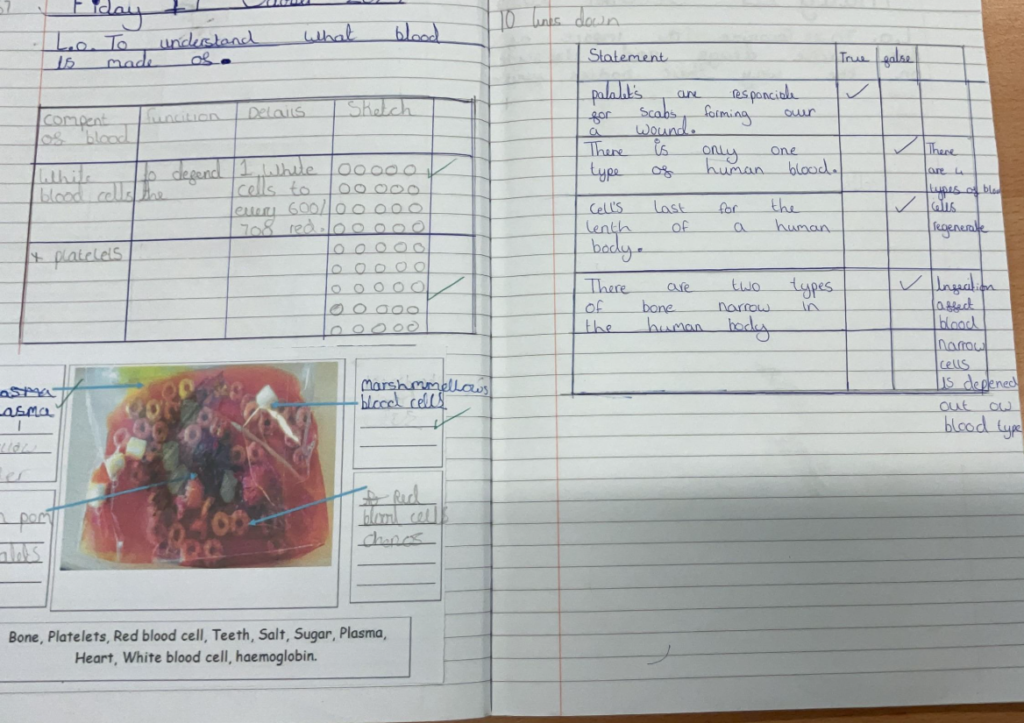 Friday
L.o. To understand what blood
is made of.
compent
of blood
function
Details
Sketch
White
blood cells
to depend
the
1 white
cells to
every 600/
708 red.
platelets
asma
asma
Marshmmellows
blood cells
Red
blood cells
pom
Bone, Platelets, Red blood cell, Teeth, Salt, Sugar, Plasma,
Heart, White blood cell, haemoglobin.
10 lines down
Statement
True
false
palalets are responcible
for scabs forming over
a wound.
There is only one
type of human blood.
There
are 4
types of bloo
Cell's last for the
lenth of a human
body.
Cells
regenerate
There are two types
of bone narrow in
the human body
Infection
affect
blood
narrow
cells
is depened
out ow
blood type